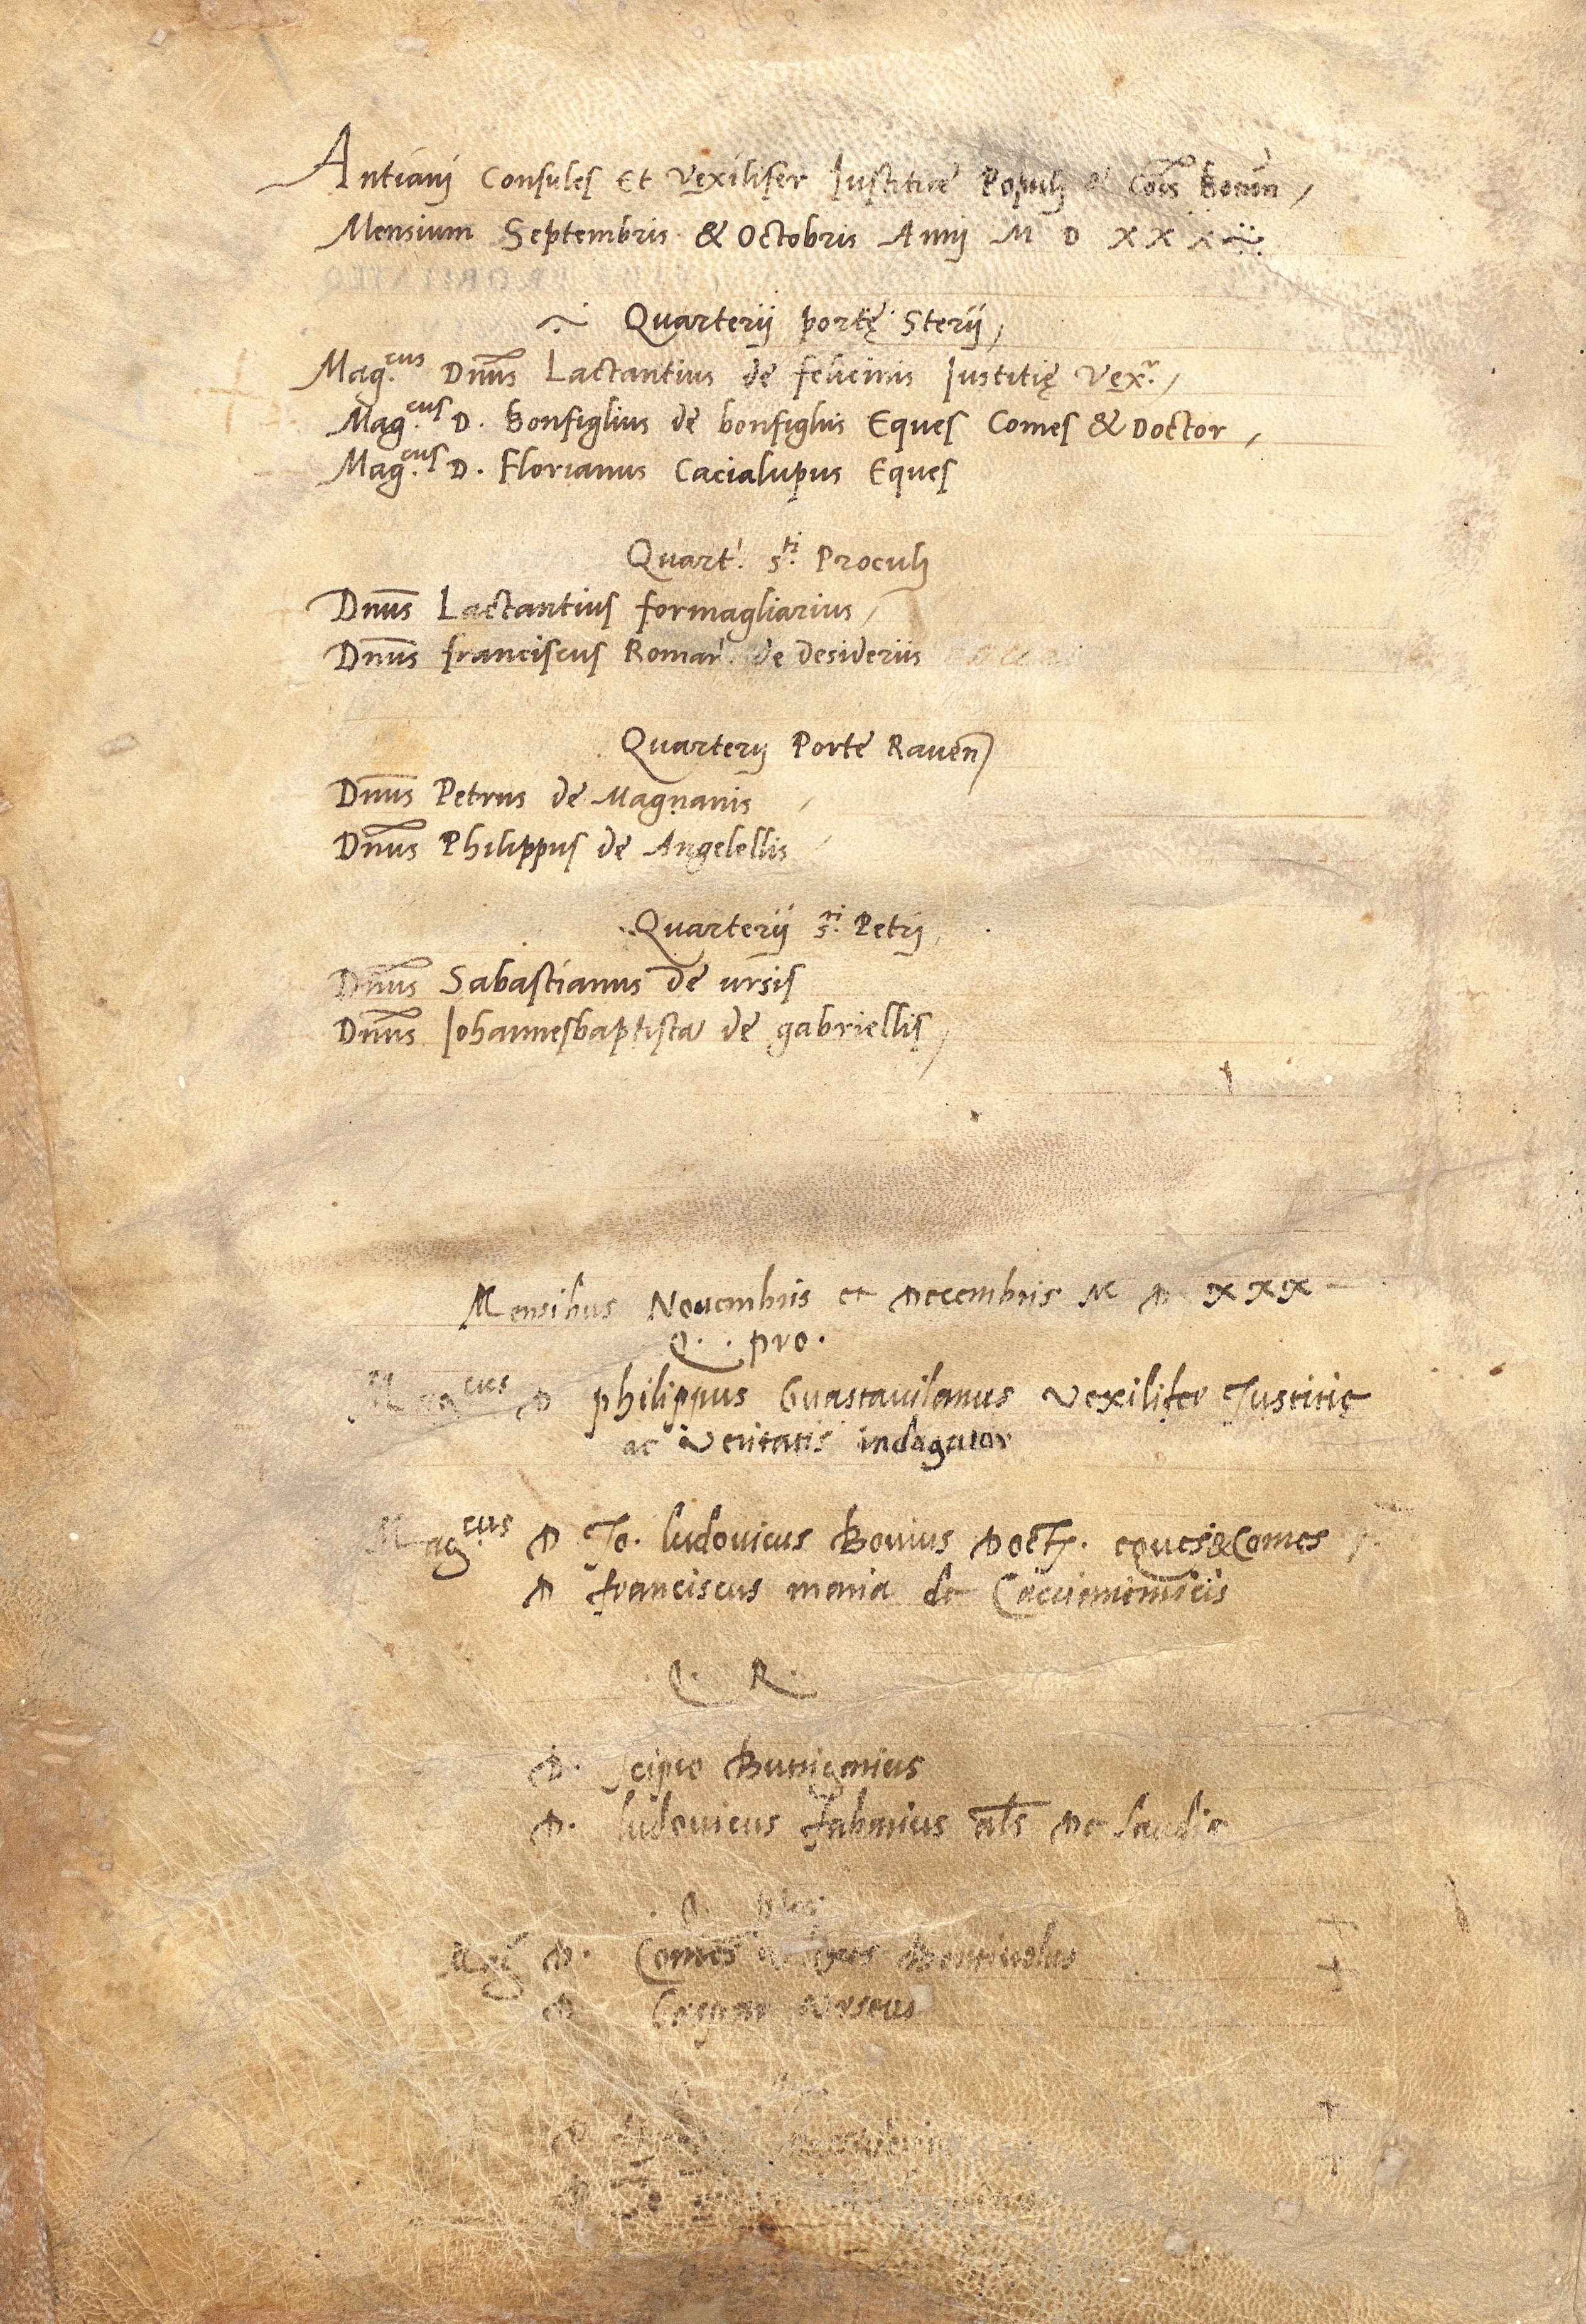 Antianj Consules Et Vexilifer Iustitiae Populj & Cois Bonon
Mensium Septembris & Octobris Annj M D X X X
Quarterij portę Sterij
Mag.cus Dnus Lactantius de felicinis Iustitię Vex.r
Mag.cus D. Bonfiglius de bonfigliis Eques Comes & Doctor
Mag.cus D. Florianus Cacialupus Eques
Quart. s.ti Proculj
Dnus Lactantius formagliarius
Dnus franciscus Roman. de desideriis
Quarterij Porte Rauen
Dnus Petrus de Magnanis
Dnus Philippus de Angelellis
Quarterij s.ti Petrj
Dnus Sabastianus de ursis
Dnus Iohannesbaptista de gabriellis
Mensibus Nouembris et Decembris M D XXX
Q. pro.
Mag.cus D philippus Guastauilanus Vexilifer Iustitię
ac Veritatis indagator
Mag.cus D Io. ludouicus Bouius Doct. eques & Comes
D franciscus maria de Caccianimicis
Q. R.
D. Scipio Butrigarius
D. ludouicus fabarius als De
Mag D. Comes Bentiuolus
D Gaspar Urseus
D
D